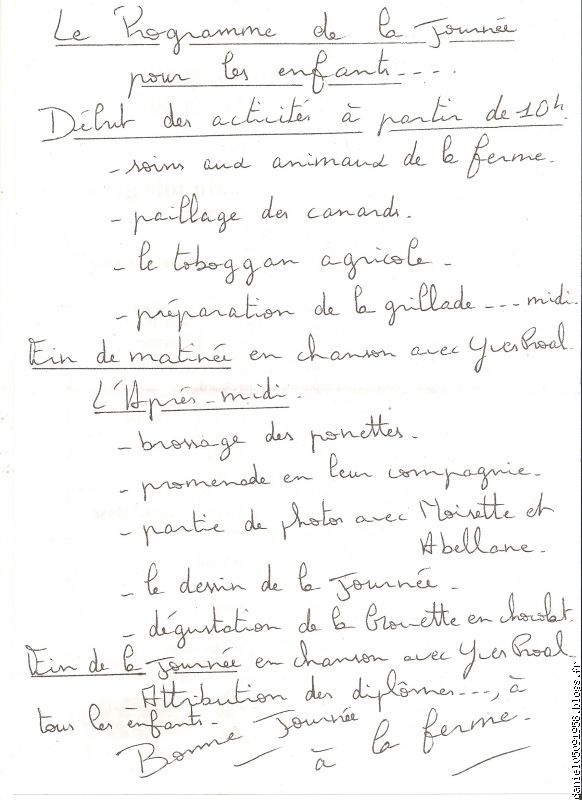 Le Programme de la Journée
pour les enfants....
Début des activités à partir de 10h.
- soins aux animaux de la ferme.
- paillage des canards.
- le toboggan agricole.
- préparation de la grillade ... midi.
Fin de matinée en chanson avec Yves Proal
L'Après-midi.
- brossage des ponettes.
- promenade en leur compagnie.
- partie de photos avec Noisette et
Abellane.
- le dessin de la journée.
- dégustation de la brouette en chocolat.
Fin de la journée en chanson avec Yves Proal
- Attribution des diplômes..., à
tous les enfants.
Bonne Journée
à la ferme.